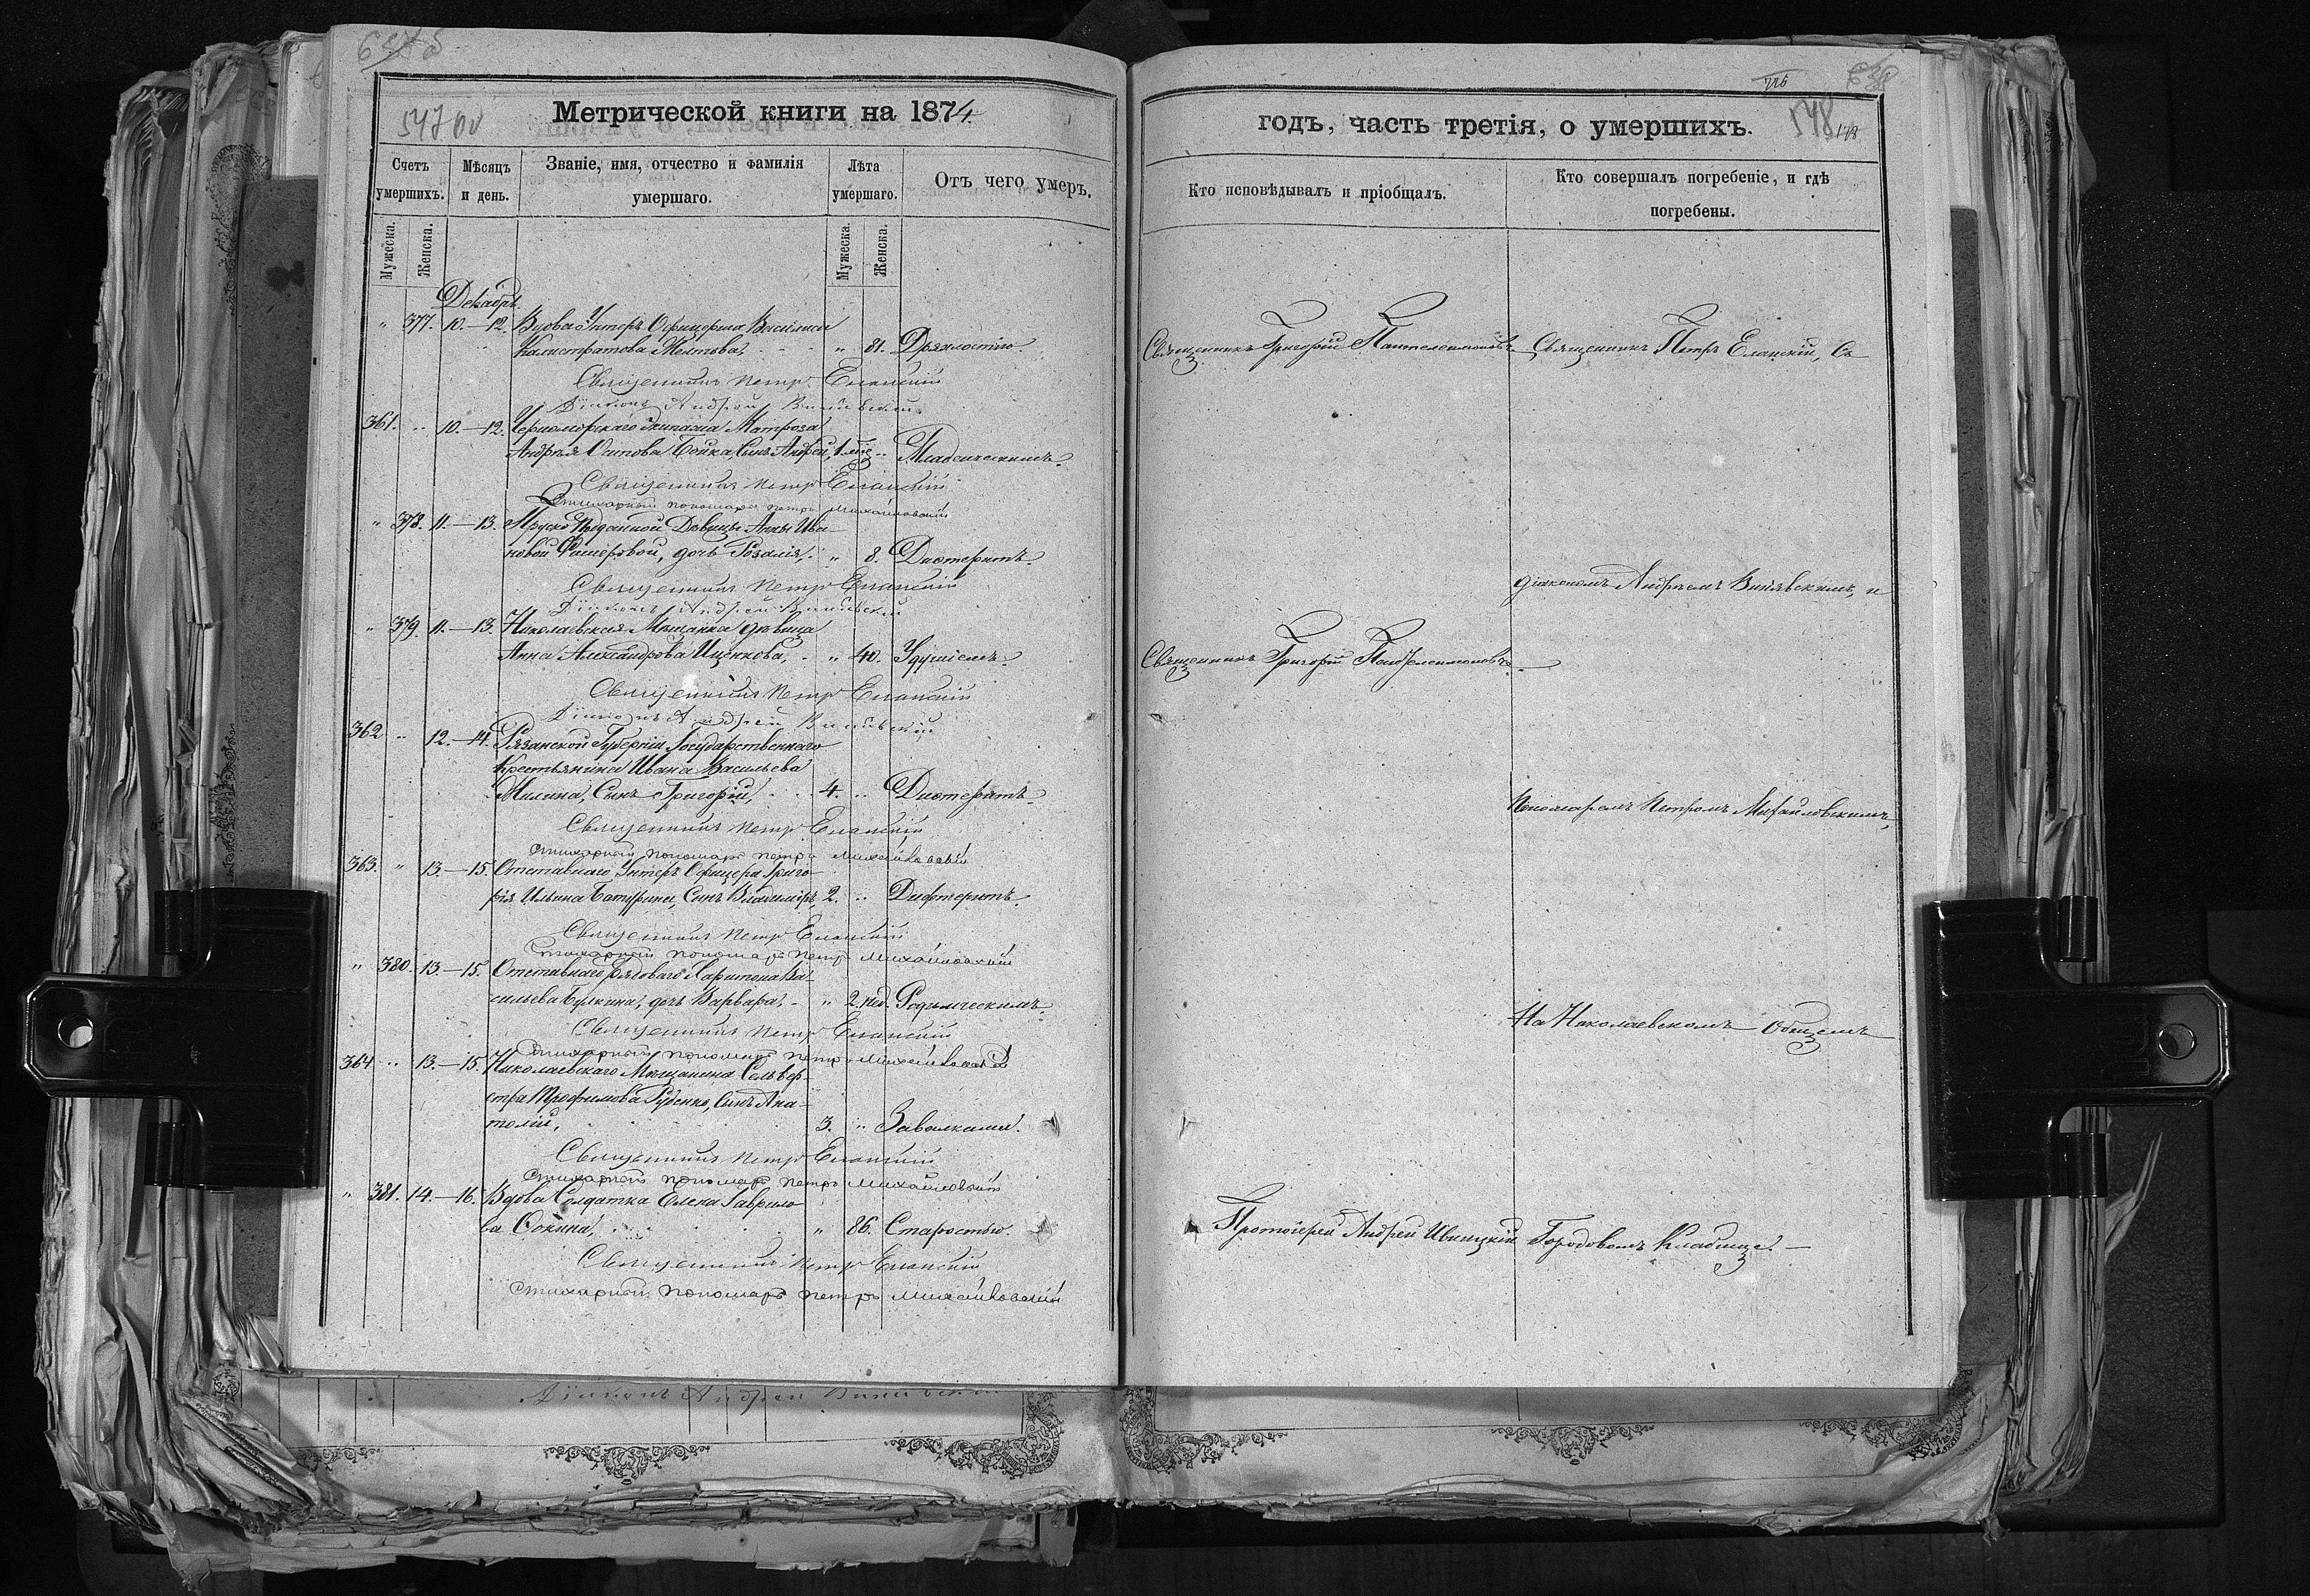 Метрической книги на 1874
547 об
Счетъ умершихъ.
Мѣсяцъ и день.
Званіе, имя, отчество и фамилія умершаго.
Лѣта умершаго.
Отъ чего умеръ.
Мужеска.
Женска.
Мужеска.
Женска.
Декабрь
" 377. 10.—12. Вдова Унтеръ Офицерша Василиса
Калистратова " 81. Дряхлостію.
Священникъ Петръ Еланскій
Діаконъ Андрей
361. " 10.—12. Черноморскаго Экипажа Матроза
Андрея Осипова Бойка, Сынъ Андрей, " Младенческимъ.
Священникъ Петръ Еланскій
Стихарный пономарь Петръ Михайловскій
" 378. 11.—13. Прусско Подданной Дѣвицы Анны Ива
новой Фишеровой, дочь Розалія, " 8. Дифтеритъ.
Священникъ Петръ Еланскій
Діаконъ Андрей
" 379. 11.—13. Николаевская Мѣщанка дѣвица
Анна Александрова Ищенкова, " 40. Удушіемъ.
Священникъ Петръ Еланскій
Діаконъ Андрей
362 " 12.—14. Рязанской Губерніи Государственнаго
Крестьянина Ивана Васильева
Милина, Сынъ Григорій, 4. " Дифтеритъ.
Священникъ Петръ Еланскій
Стихарный пономарь Петръ Михайловскій
363. " 13.—15. Отставнаго Унтеръ Офицера Григо
рія Ильина Батурина, Сынъ Владиміръ, 2. " Дифтеритъ.
Священникъ Петръ Еланскій
Стихарный пономарь Петръ Михайловскій
" 380. 13.—15. Отставнаго Рядоваго Харитона Ва
сильева Булкина, дочь Варвара, " 2. нед. Родимческимъ.
Священникъ Петръ Еланскій
Стихарный пономарь Петръ Михайловскій
364 " 13.—15. Николаевскаго Мѣщанина Сельвер-
стра Трофимова Руденко, Сынъ Ана-
толій, 3. " Завалками.
Священникъ Петръ Еланскій
Стихарный пономарь Петръ Михайловскій
" 381. 14.—16. Вдова Солдатка Елена Гаврило
ва Сокина, " 86. Старостью.
Священникъ Петръ Еланскій
Стихарный пономарь Петръ Михайловскій
годъ, часть третія, о умершихъ.
548
Кто исповѣдывалъ и пріобщалъ.
Кто совершалъ погребеніе, и гдѣ
погребены.
Священникъ Григорій Пантелеимоновъ
Священникъ Петръ Еланскій, Съ
діакономъ Андреемъ и
Священникъ Григорій Пантелеимоновъ
пономаремъ Петромъ Михайловскимъ,
На Николаевскомъ Общемъ
Протоіерей Андрей Ивницкій
Городовомъ Кладбище.—